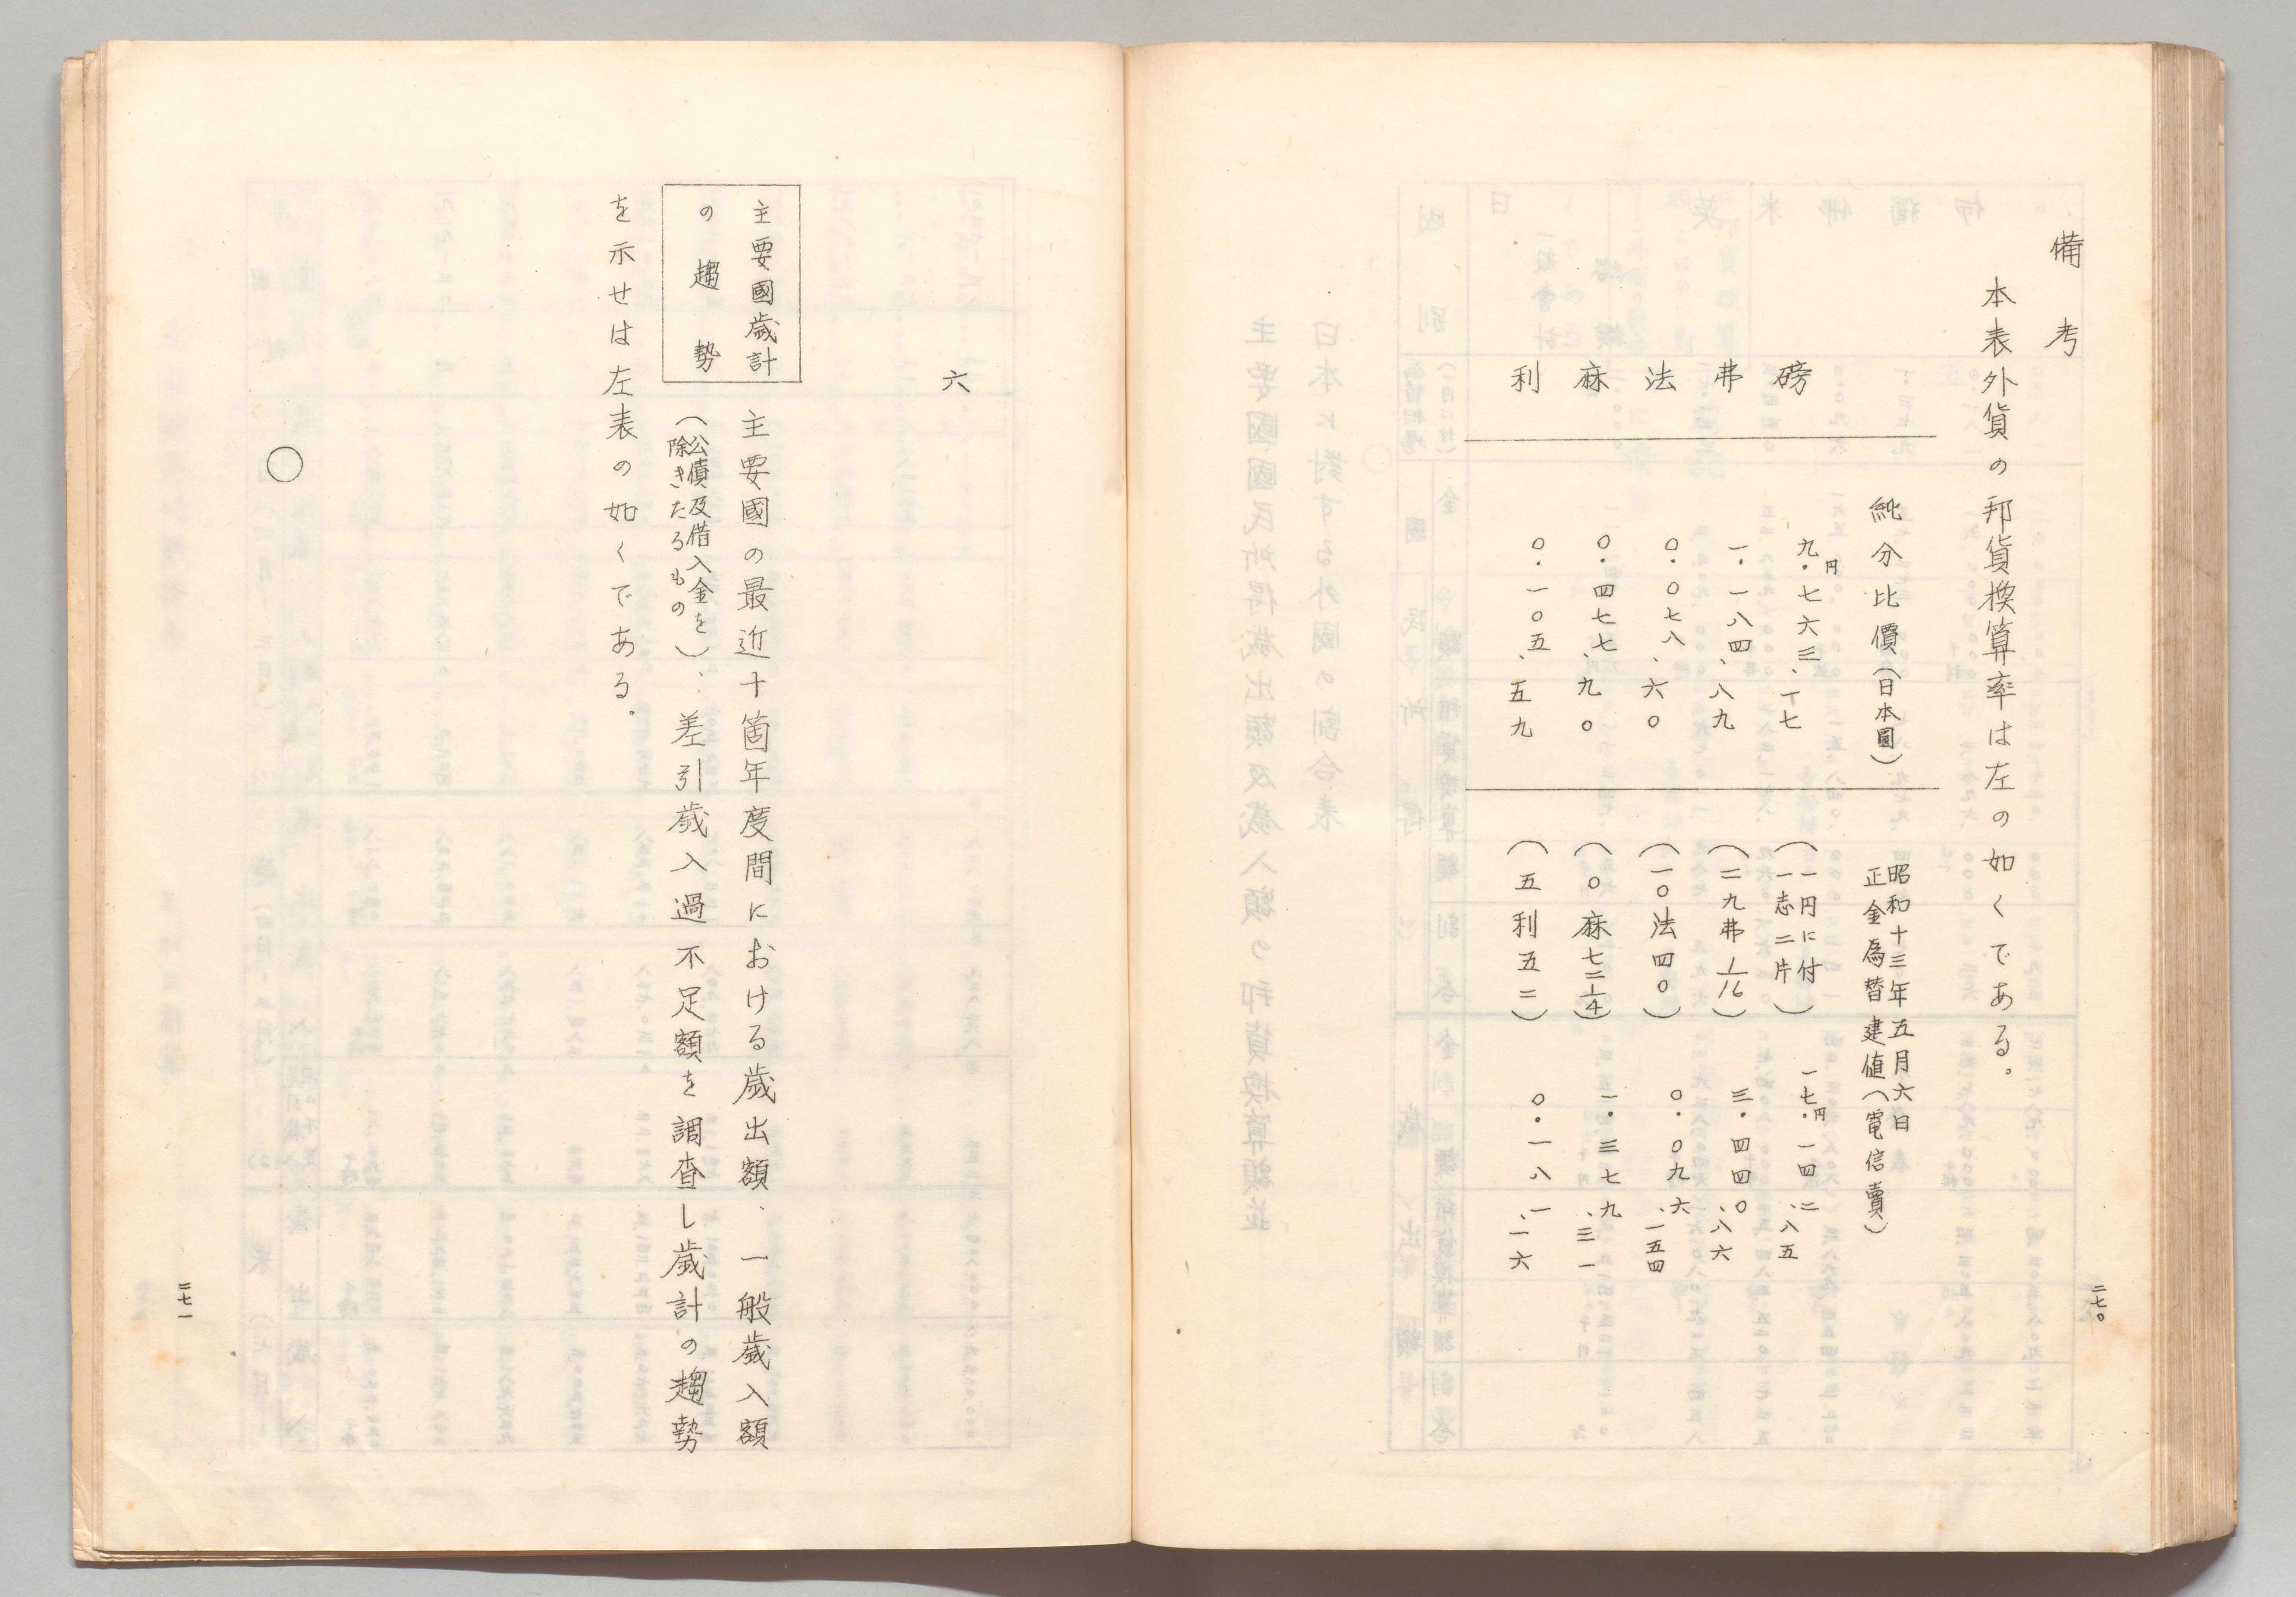 備考
本表外貨の邦貨換算率は左の如くである。
純分比價(日本圓)
昭和十三年五月六日
正金為替建値(電信賣)
磅 九・七六三、一七円 (一円に付一志二片) 一七・一四二、八五円
弗 一・一八四、八九 (二九弗1/16) 三・四四〇、八六
法 〇・〇七八、六〇 (一〇法四〇) 〇・〇九六、一五四
麻 〇・四七七、九〇 (〇麻七二1/4) 一・三七九、三一
利 〇・一〇五、五九 (五利五二) 〇・一八一、一六
二七〇
六
主要國歲計
の趨勢
主要國の最近十箇年度間における歲出額、一般歲入額
(公債及借入金を除きたるもの)、差引歲入過不足額を調査し歲計の趨勢
を示せは左表の如くである。
〇
二七一